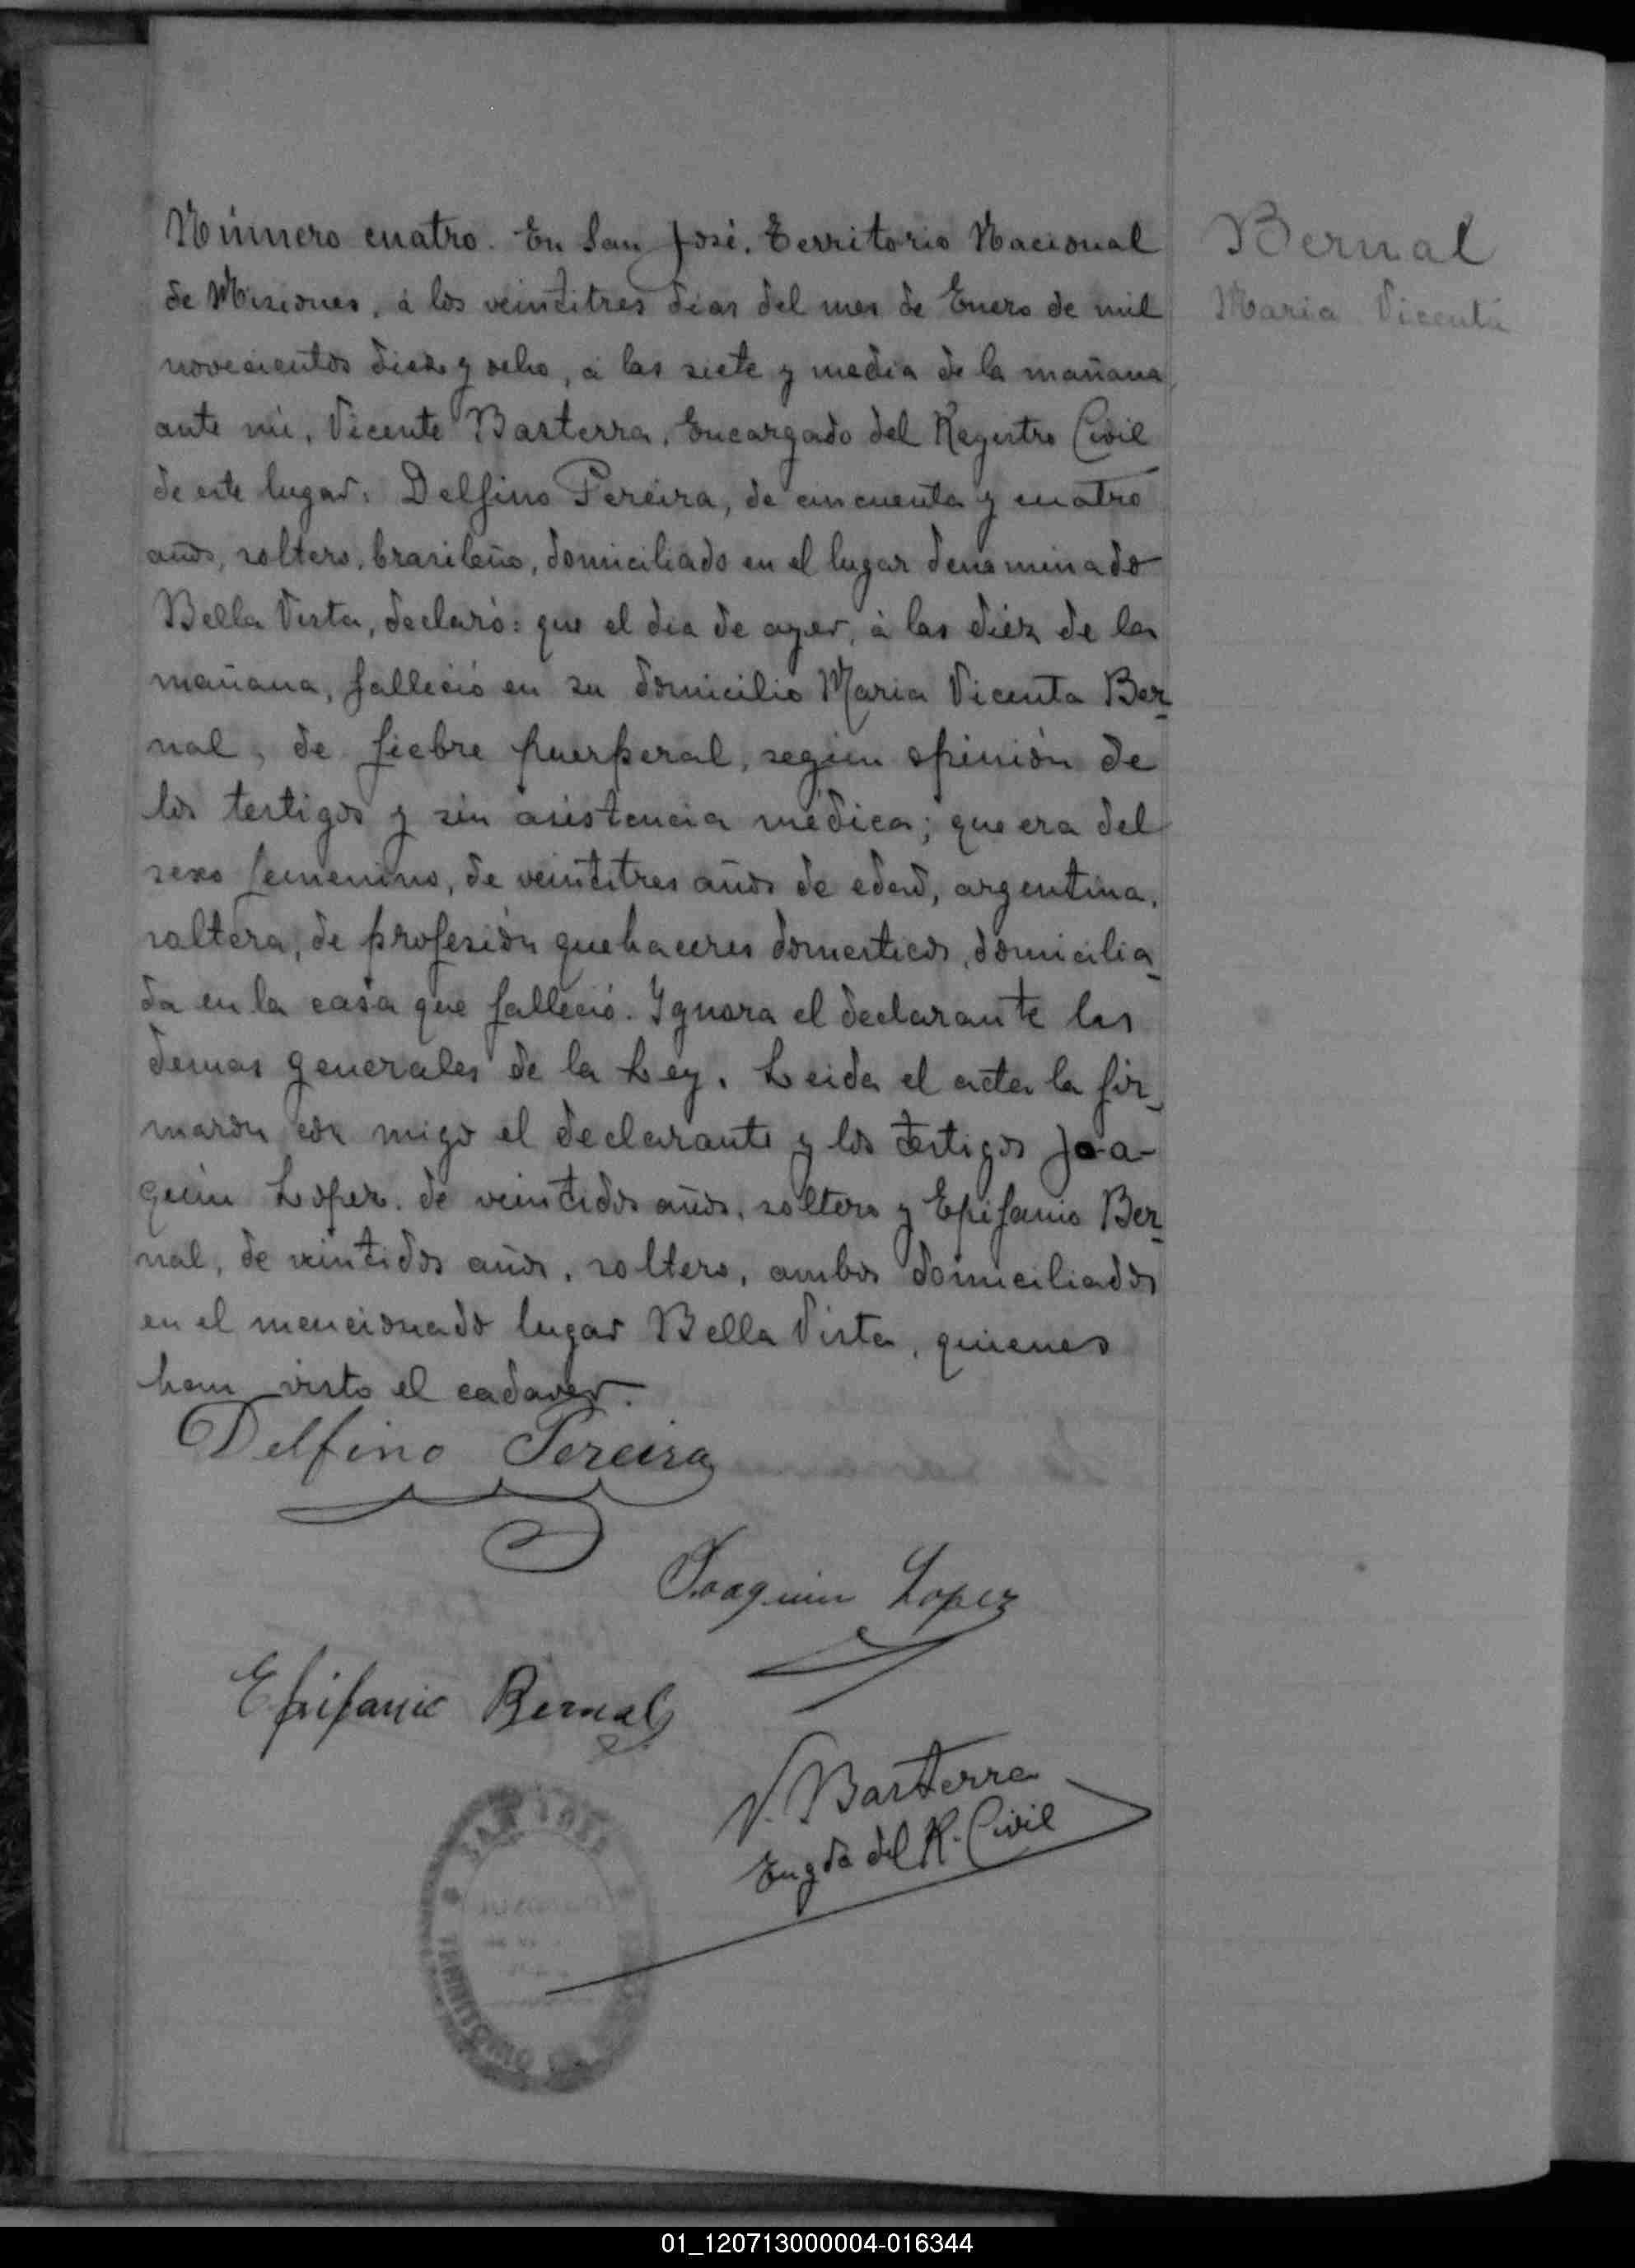 Número cuatro. En San José, Territorio Nacional
de Misiones, á los veintitres dias del mes de Enero de mil
novecientos diez y ocho, á las siete y media de la mañana,
ante mi, Vicente Basterra, Encargado del Registro Civil
de este lugar: Delfino Pereira, de cincuenta y cuatro
años, soltero, brasileño, domiciliado en el lugar denominado
Bella Vista, declaró: que el dia de ayer, à las diéz de la
mañana, falleció en su domicilio Maria Vicenta Ber-
nal, de fiebre puerperal, según opinión de
los testigos y sin asistencia médica; que era del
sexo femenino, de veintitres años de edad, argentina,
soltera, de profesión quehaceres domesticos, domicilia-
da en la casa que falleció. Ignora el declarante las
demas generales de la Ley. Leida el acta la fir-
maron con migo el declarante y los testigos Joa-
quin Lopez, de veintidos años, soltero y Epifanio Ber-
nal, de veintidos años, soltero, ambos domiciliados
en el mencionado lugar Bella Vista, quienes
han visto el cadaver.
Bernal
Maria Vicenta
Delfino Pereira
Joaquin Lopez
Epifanio Bernal
V. Basterra
Engdo del R. Civil
SAN JOSE
TERRITORIO
01_120713000004-016344